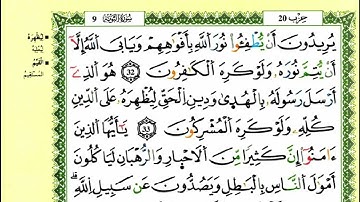 9 سورة التوبة حزب 20
يُرِيدُونَ أَنْ يُطْفِـُٔوا۟ نُورَ ٱللَّهِ بِأَفْوَٰهِهِمْ وَيَأْبَى ٱللَّهُ إِلَّآ
أَنْ يُتِمَّ نُورَهُۥ وَلَوْ كَرِهَ ٱلْكَٰفِرُونَ 32 هُوَ ٱلَّذِےٓ
أَرْسَلَ رَسُولَهُۥ بِٱلْهُدَىٰ وَدِينِ ٱلْحَقِّ لِيُظْهِرَهُۥ عَلَى ٱلدِّينِ
كُلِّهِۦ وَلَوْ كَرِهَ ٱلْمُشْرِكُونَ 33 يَٰٓأَيُّهَا ٱلَّذِينَ
ءَامَنُوٓا۟ إِنَّ كَثِيرًا مِّنَ ٱلْأَحْبَارِ وَٱلرُّهْبَانِ لَيَأْكُلُونَ
أَمْوَٰلَ ٱلنَّاسِ بِٱلْبَٰطِلِ وَيَصُدُّونَ عَن سَبِيلِ ٱللَّهِ
لِيُظْهِرَهُ
ٱلْقَيِّمُ
المستقيم